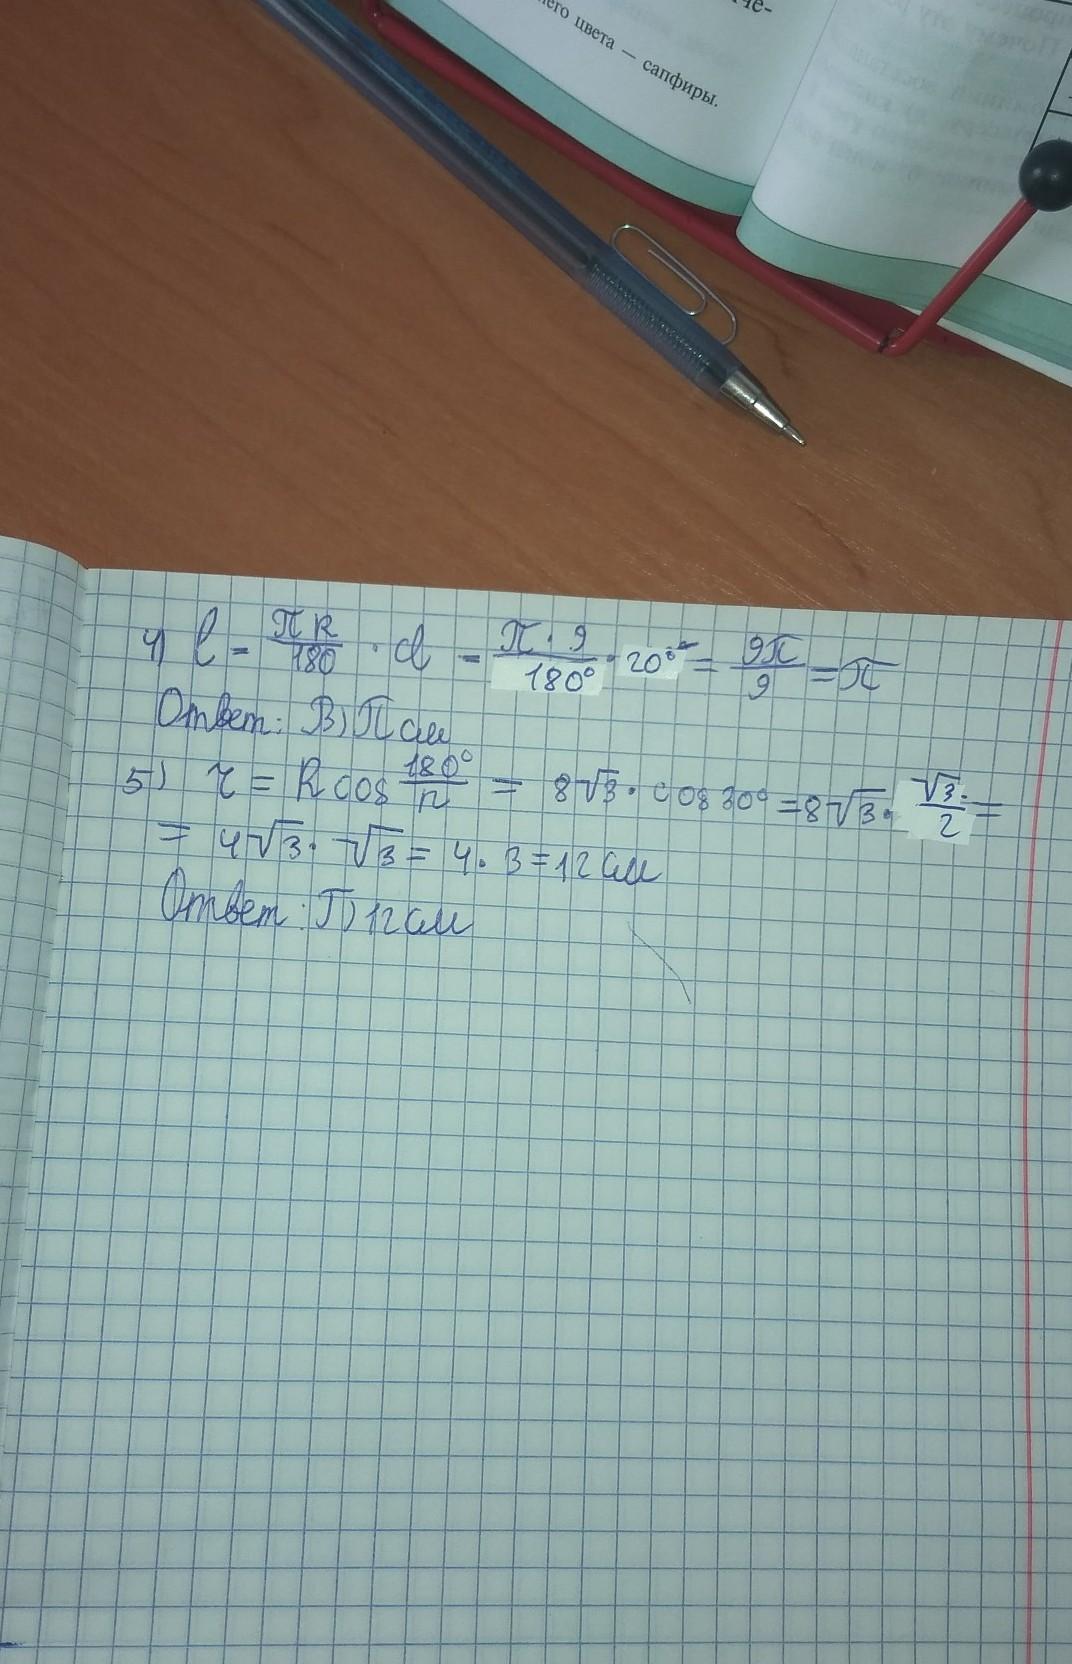 че-
него цвета — сапфиры.
4) l = πR/180 · α = π · 9/180° · 20° = 9π/9 = π
Ответ: В) П см
5) r = R cos 180°/n = 8√3 · cos 30° = 8√3 · √3/2 =
= 4√3 · √3 = 4 · 3 = 12 см
Ответ: Г) 12 см